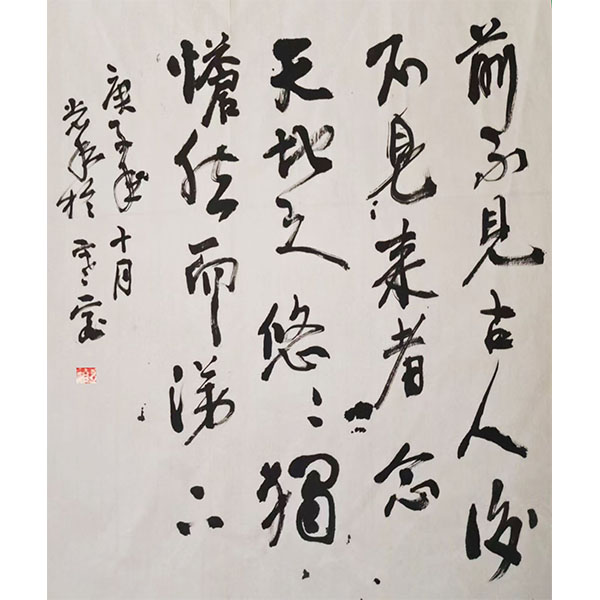 前不见古人後
不見来者念
天地之悠〻獨
愴然而涕下
庚子年十月